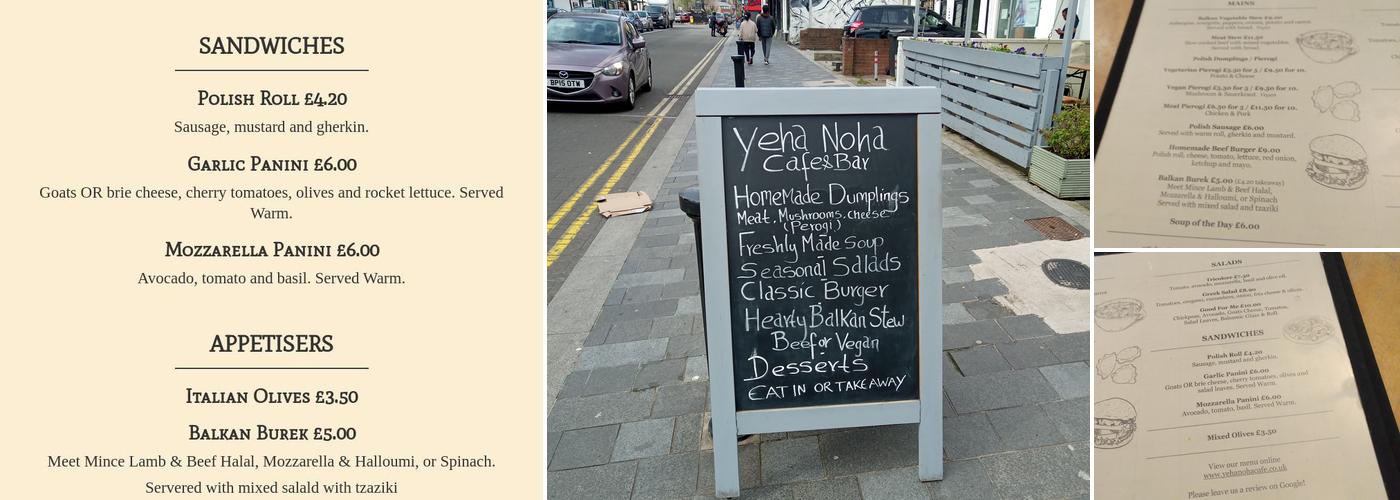 SANDWICHES
Polish Roll £4.20
Sausage, mustard and gherkin.
Garlic Panini £6.00
Goats OR brie cheese, cherry tomatoes, olives and rocket lettuce. Served
Warm.
Mozzarella Panini £6.00
Avocado, tomato and basil. Served Warm.
APPETISERS
Italian Olives £3.50
Balkan Burek £5.00
Meet Mince Lamb & Beef Halal, Mozzarella & Halloumi, or Spinach.
Servered with mixed salald with tzaziki
BP15 OTW
Yeha Noha
Cafe&Bar
HomeMade Dumplings
Meat, Mushrooms, cheese
(Perogi)
Freshly Made Soup
Seasonal Salads
Classic Burger
Hearty Balkan Stew
Beef or Vegan
Desserts
EAT IN OR TAKE AWAY
MAINS
Balkan Vegetable Stew £9.20
Aubergine, courgette, peppers, onions, potato and carrot.
Served with bread. Vegan
Meat Stew £11.50
Slow cooked beef with mixed vegetables.
Served with bread.
Polish Dumplings / Pierogi
Vegetarian Pierogi £5.50 for 5 / £9.50 for 10.
Potato & Cheese
Vegan Pierogi £5.50 for 5 / £9.50 for 10.
Mushroom & Sauerkraut. Vegan
Meat Pierogi £6.50 for 5 / £11.50 for 10.
Chicken & Pork
Polish Sausage £6.00
Served with warm roll, gherkin and mustard.
Homemade Beef Burger £9.00
Polish roll, cheese, tomato, lettuce, red onion,
ketchup and mayo.
Balkan Burek £5.00 (£4.20 takeaway)
Meet Mince Lamb & Beef Halal,
Mozzarella & Halloumi, or Spinach
Served with mixed salad and tzaziki
Soup of the Day £6.00
SALADS
Tricolore £7.50
Tomato, avocado, mozzarella, basil and olive oil.
Greek Salad £8.90
Tomatoes, oregano, cucumbers, onion, feta cheese & olives.
Good For Me £10.00
Chickpeas, Avocado, Goats Cheese, Tomatoes,
Salad Leaves, Balsamic Glaze & Roll.
SANDWICHES
Polish Roll £4.20
Sausage, mustard and gherkin.
Garlic Panini £6.00
Goats OR brie cheese, cherry tomatoes, olives and
salad leaves. Served Warm.
Mozzarella Panini £6.00
Avocado, tomato, basil. Served Warm.
Mixed Olives £3.50
View our menu online
www.yehanohacafe.co.uk
Please leave us a review on Google!